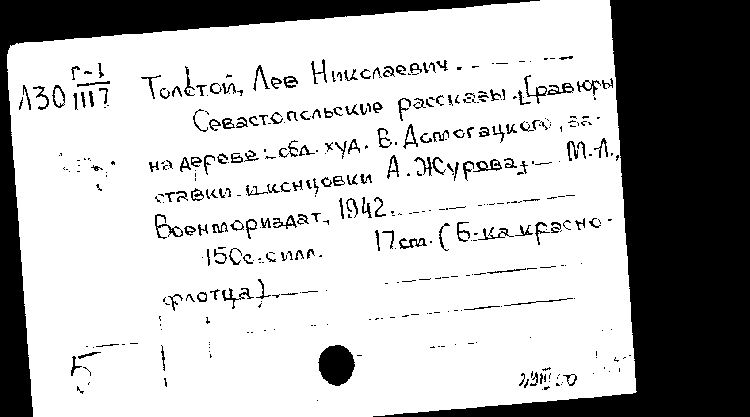 Л30 Г-1/1117 Толстой, Лев Николаевич.
Севастопольские рассказы. [Гравюры
на дереве: обл. худ. Е. Домогацкого, за-
ставки и концовки А. Журова]. М.-Л.,
Военмориздат, 1942.
150с. с илл. 17см. (Б-ка красно-
флотца).
5